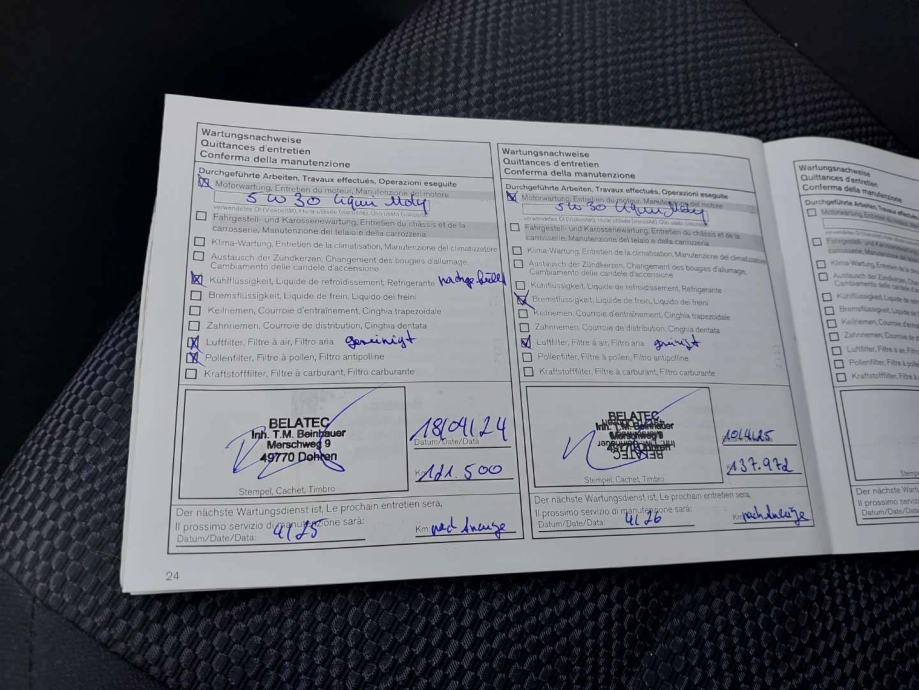 Wartungsnachweise
Quittances d'entretien
Conferma della manutenzione
Durchgeführte Arbeiten, Travaux effectués, Operazioni eseguite
Motorwartung, Entretien du moteur, Manutenzione del motore
5W30 Liqui Moly
Fahrgestell- und Karosseriewartung, Entretien du châssis et de la
carrosserie, Manutenzione del telaio e della carrozzeria
Klima-Wartung, Entretien de la climatisation, Manutenzione del climatizzatore
Austausch der Zündkerzen, Changement des bougies d'allumage,
Cambiamento delle candele d'accensione
Kühlflüssigkeit, Liquide de refroidissement, Refrigerante
Bremsflüssigkeit, Liquide de frein, Liquido dei freini
Keilriemen, Courroie d'entraînement, Cinghia trapezoidale
Zahnriemen, Courroie de distribution, Cinghia dentata
Luftfilter, Filtre à air, Filtro aria gereinigt
Pollenfilter, Filtre à pollen, Filtro antipolline
Kraftstofffilter, Filtre à carburant, Filtro carburante
BELATEC
Inh. T.M. Beinbauer
Merschweg 9
49770 Dohren
Stempel, Cachet, Timbro
18/04/24
Datum/Date/Data
121.500
Der nächste Wartungsdienst ist, Le prochain entretien sera,
Il prossimo servizio di manutenzione sarà:
Datum/Date/Data: 4/25
Km: nach Anzeige
24
Wartungsnachweise
Quittances d'entretien
Conferma della manutenzione
Durchgeführte Arbeiten, Travaux effectués, Operazioni eseguite
Motorwartung, Entretien du moteur, Manutenzione del motore
5W30 Liqui Moly
Fahrgestell- und Karosseriewartung, Entretien du châssis et de la
carrosserie, Manutenzione del telaio e della carrozzeria
Klima-Wartung, Entretien de la climatisation, Manutenzione del climatizzatore
Austausch der Zündkerzen, Changement des bougies d'allumage,
Cambiamento delle candele d'accensione
Kühlflüssigkeit, Liquide de refroidissement, Refrigerante
Bremsflüssigkeit, Liquide de frein, Liquido dei freini
Keilriemen, Courroie d'entraînement, Cinghia trapezoidale
Zahnriemen, Courroie de distribution, Cinghia dentata
Luftfilter, Filtre à air, Filtro aria
Pollenfilter, Filtre à pollen, Filtro antipolline
Kraftstofffilter, Filtre à carburant, Filtro carburante
BELATEC
Merschweg 9
49770 Dohren
BELATEC
Stempel, Cachet, Timbro
10/4/25
137.972
Der nächste Wartungsdienst ist, Le prochain entretien sera,
Il prossimo servizio di manutenzione sarà:
Datum/Date/Data: 4/26
Km: nach Anzeige
Wartungsnachweise
Quittances d'entretien
Conferma della manutenzione
Durchgeführte Arbeiten,
Motorwartung, Entretien
Fahrgestell- und Karosse
carrosserie, Manutenzione
Klima-Wartung, Entretien
Austausch der Zünd
Cambiamento delle
Kühlflüssigkeit, Liquide
Bremsflüssigkeit,
Keilriemen, Courroie
Zahnriemen, Cou
Luftfilter, Filtre à
Pollenfilter, Filtre
Kraftstofffilter,
Der nächste War
Il prossimo servi
Datum/Date/Data